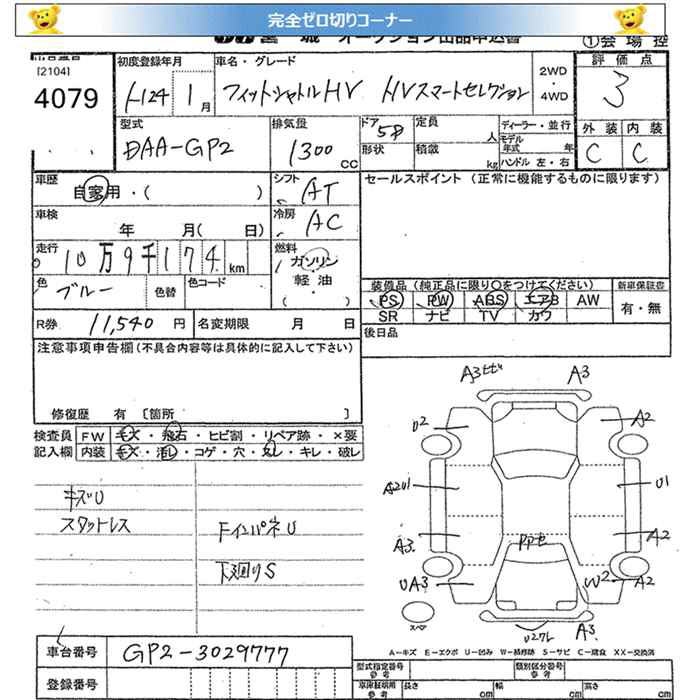 完全ゼロ切りコーナー
宮城 オークション出品申込書 ①会場控
[2104]
4079
初度登録年月
H24 1 月
車名・グレード
フィットシャトルHV HVスマートセレクション
2WD
・
4WD
評価点
3
外装 内装
C C
型式
DAA-GP2
排気量
1300 cc
ドア 5D
形状
定員 人
積載 kg
ディーラー・並行
モデル年式 年
ハンドル 左・右
車歴
自家用・( )
シフト
AT
セールスポイント (正常に機能するものに限ります)
車検
年 月( 日)
冷房
AC
走行
10万9千174 km
燃料
ガソリン
・
軽油
・
( )
色
ブルー
色替
色コード
装備品 (純正品に限り○をつけてください)
PS PW ABS エアB AW
SR ナビ TV カワ
新車保証書
有・無
R券 11,540 円
名変期限 月 日
後日品
注意事項申告欄(不具合内容等は具体的に記入して下さい)
修復歴 有 [箇所 ]
検査員
記入欄
FW キズ・飛石・ヒビ割・リペア跡・×要
内装 キズ・汚レ・コゲ・穴・スレ・キレ・破レ
キズU
スタットレス
FインパネU
下廻りS
A3 A3
U2 A2
A2U1 U1
A3. A2
UA3 W2 A2
スペア
A3.
A-キズ E-エクボ U-凹み W-補修跡 S-サビ C-腐食 XX-交換済
車台番号 GP2-3029777
登録番号
型式指定番号
参考
類別区分番号
参考
車庫証明用
参考
長さ cm
幅 cm
高さ cm